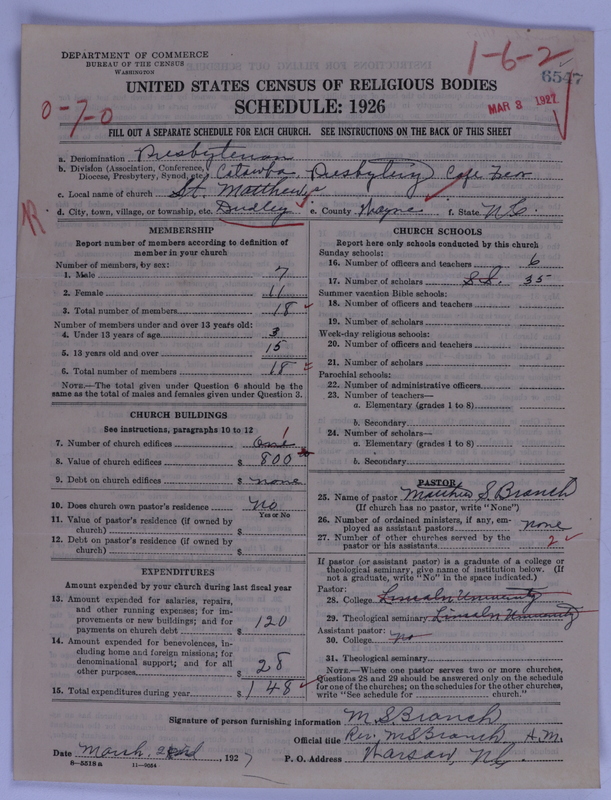 DEPARTMENT OF COMMERCE
BUREAU OF THE CENSUS
WASHINGTON
1-6-2
6547
UNITED STATES CENSUS OF RELIGIOUS BODIES
SCHEDULE: 1926
MAR 3 1927
0-7-0
FILL OUT A SEPARATE SCHEDULE FOR EACH CHURCH. SEE INSTRUCTIONS ON THE BACK OF THIS SHEET
a. Denomination Presbyterian
b. Division (Association, Conference, Diocese, Presbytery, Synod, etc.) Catawba Presbytery Cape Fear
c. Local name of church St. Matthews
d. City, town, village, or township, etc. Dudley e. County Wayne f. State N.C.
MEMBERSHIP
Report number of members according to definition of
member in your church
Number of members, by sex:
1. Male 7
2. Female 11
3. Total number of members 18
Number of members under and over 13 years old:
4. Under 13 years of age 3
5. 13 years old and over 15
6. Total number of members 18
NOTE.—The total given under Question 6 should be the
same as the total of males and females given under Question 3.
CHURCH BUILDINGS
See instructions, paragraphs 10 to 12
7. Number of church edifices one 1
8. Value of church edifices $ 800
9. Debt on church edifices $ none
10. Does church own pastor's residence No
Yes or No
11. Value of pastor's residence (if owned by
church) $
12. Debt on pastor's residence (if owned by
church) $
EXPENDITURES
Amount expended by your church during last fiscal year
13. Amount expended for salaries, repairs,
and other running expenses; for im-
provements or new buildings; and for
payments on church debt $ 120
14. Amount expended for benevolences, in-
cluding home and foreign missions; for
denominational support; and for all
other purposes $ 28
15. Total expenditures during year $ 148
CHURCH SCHOOLS
Report here only schools conducted by this church
Sunday schools:
16. Number of officers and teachers 6
17. Number of scholars S.S. 35
Summer vacation Bible schools:
18. Number of officers and teachers
19. Number of scholars
Week-day religious schools:
20. Number of officers and teachers
21. Number of scholars
Parochial schools:
22. Number of administrative officers
23. Number of teachers—
a. Elementary (grades 1 to 8)
b. Secondary
24. Number of scholars—
a. Elementary (grades 1 to 8)
b. Secondary
PASTOR
25. Name of pastor S. Branch
(If church has no pastor, write "None")
26. Number of ordained ministers, if any, em-
ployed as assistant pastors none
27. Number of other churches served by the
pastor or his assistants 2
If pastor (or assistant pastor) is a graduate of a college or
theological seminary, give name of institution below. (If
not a graduate, write "No" in the space indicated.)
Pastor:
28. College Lincoln University
29. Theological seminary Lincoln University
Assistant pastor:
30. College no
31. Theological seminary
NOTE.—Where one pastor serves two or more churches,
Questions 28 and 29 should be answered only on the schedule
for one of the churches; on the schedules for the other churches,
write "See schedule for church."
Signature of person furnishing information M. S. Branch
Official title Rev. M S Branch A.M.
Date March 2nd, 1927 P. O. Address Warsaw, N.C.
8—5518 a 11—9064